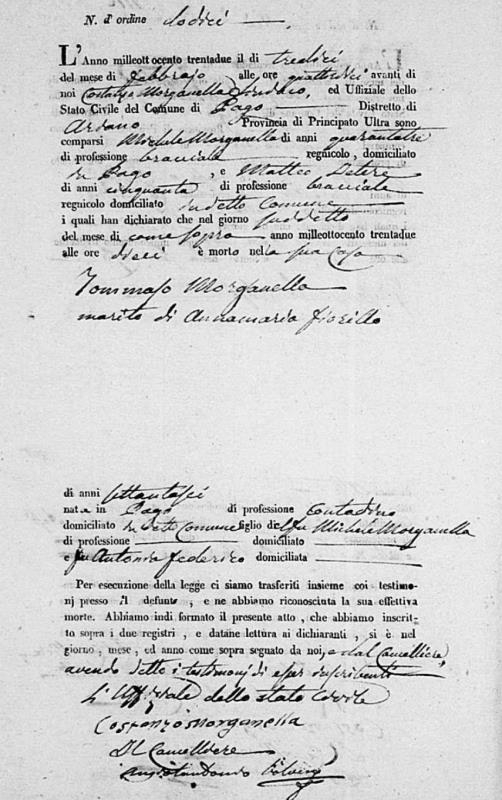 N. d'ordine dodici
L'Anno milleottocento trentadue il di tredici
del mese di Febbrajo alle ore quattordici avanti di
noi Costanzo Morganella Sindaco, ed Uffiziale dello
Stato Civile del Comune di Pago Distretto di
Ariano Provincia di Principato Ultra sono
comparsi Michele Morganella di anni quarantatre
di professione bracciale regnicolo, domiciliato
in Pago , e Matteo
di anni cinquanta di professione bracciale
regnicolo domiciliato in detto Comune
i quali han dichiarato che nel giorno suddetto
del mese di come sopra anno milleottocento trentadue
alle ore dieci è morto nella sua casa
Tommaso Morganella
marito di Annamaria Fiorillo
di anni settantasei
nato in Pago di professione Contadino
domiciliato in detto Comune figlio del fu Michele Morganella
di professione domiciliato
e fu Antonia Federico domiciliata
Per esecuzione della legge ci siamo trasferiti insieme coi testimo-
nj presso il defunto , e ne abbiamo riconosciuta la sua effettiva
morte. Abbiamo indi formato il presente atto , che abbiamo inscrit-
to sopra i due registri , e datane lettura ai dichiaranti , si è nel
giorno , mese , ed anno come sopra segnato da noi, e dal Cancelliere
avendo detto i testimonj di esser inscribenti
L'Uffiziale dello stato Civile
Costanzo Morganella
Il Cancelliere